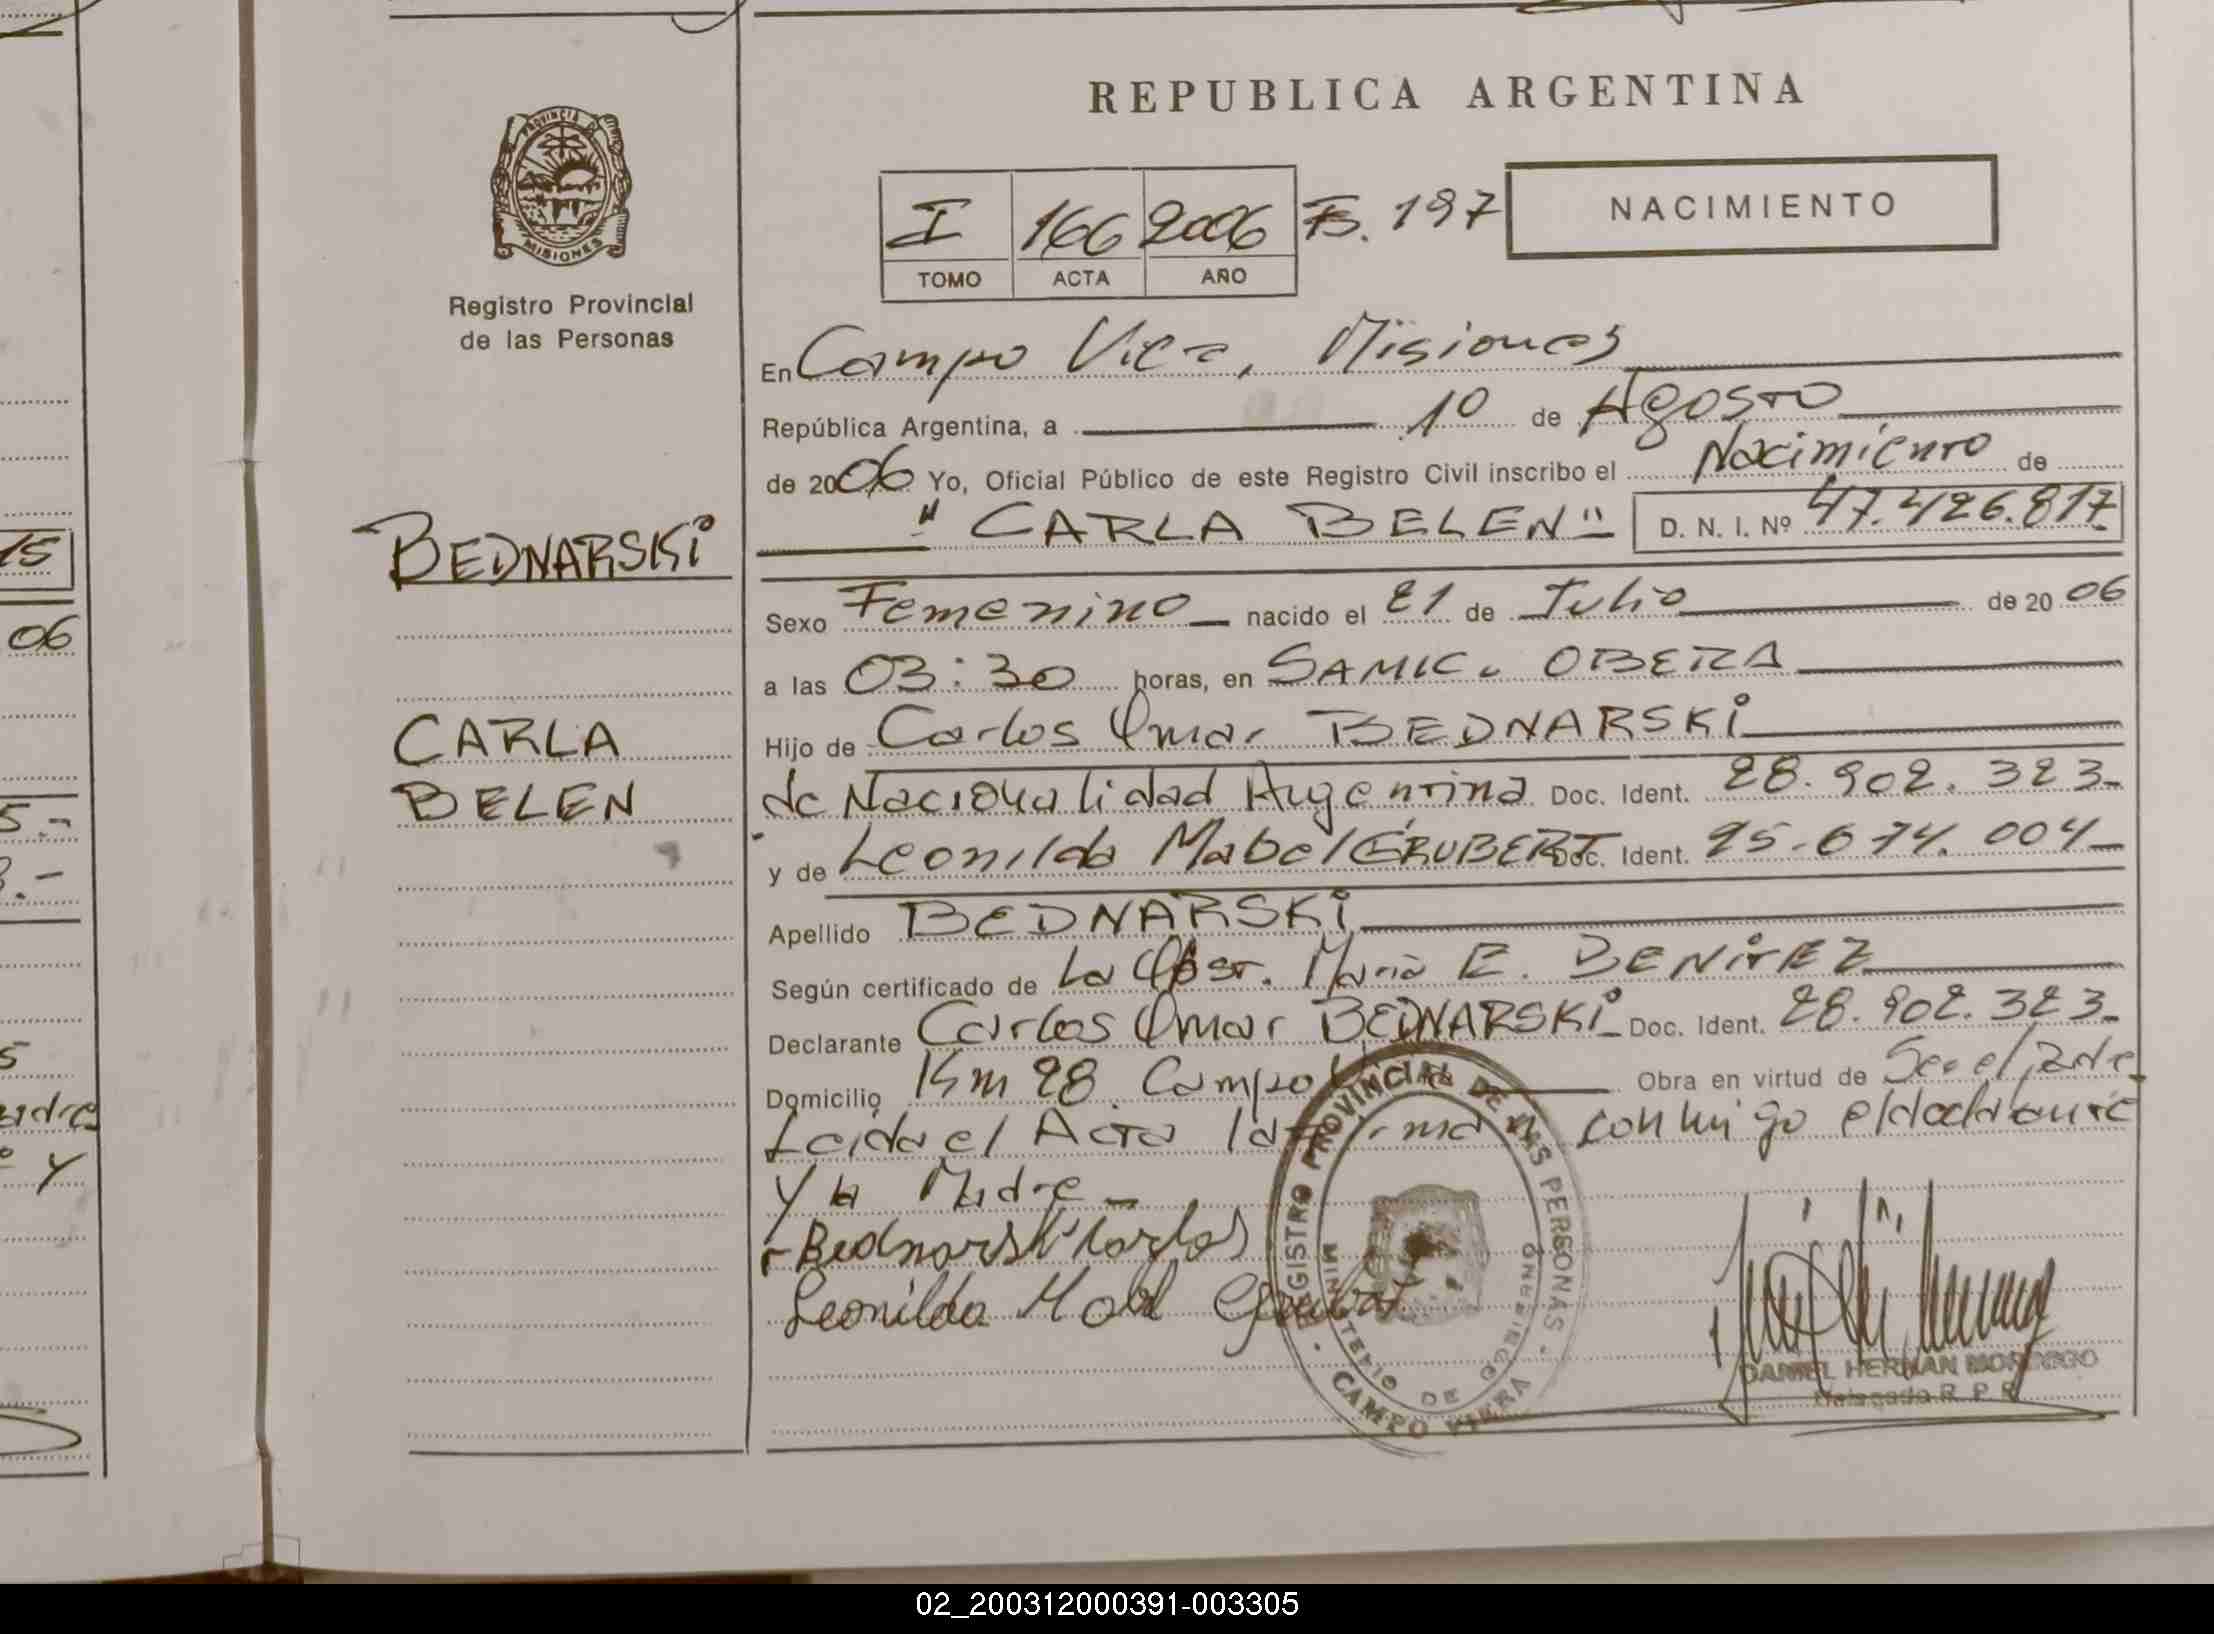 REPUBLICA ARGENTINA
PROVINCIA DE
MISIONES
Registro Provincial
de las Personas
I 166 2006 F. 197
TOMO ACTA AÑO
NACIMIENTO
En Campo Viera, Misiones
República Argentina, a 1º de Agosto
de 2006 Yo, Oficial Público de este Registro Civil inscribo el Nacimiento de
"CARLA BELEN" D. N. I. Nº 47.426.817
BEDNARSKI
Sexo Femenino nacido el 21 de Julio de 2006
a las 03:30 horas, en SAMIC. OBERA
CARLA
BELEN
Hijo de Carlos Omar BEDNARSKI
de Nacionalidad Argentina Doc. Ident. 28.902.323-
y de Leonilda Mabel GRUBERT Doc. Ident. 25.674.004-
Apellido BEDNARSKI
Según certificado de La Obst. Maria E. BENITEZ
Declarante Carlos Omar BEDNARSKI Doc. Ident. 28.902.323-
Domicilio Km 28. Campo Obra en virtud de Ser el padre
Leida el Acta la firman conmigo el declarante
y la Madre-
Bednarski Carlos
Leonilda Mabel Grubert
REGISTRO PROVINCIAL DE LAS PERSONAS
MINISTERIO DE GOBIERNO
CAMPO VIERA
DANIEL HERNAN
Delegado R. P. P.
15
06
5.-
.-
5
y
02_200312000391-003305